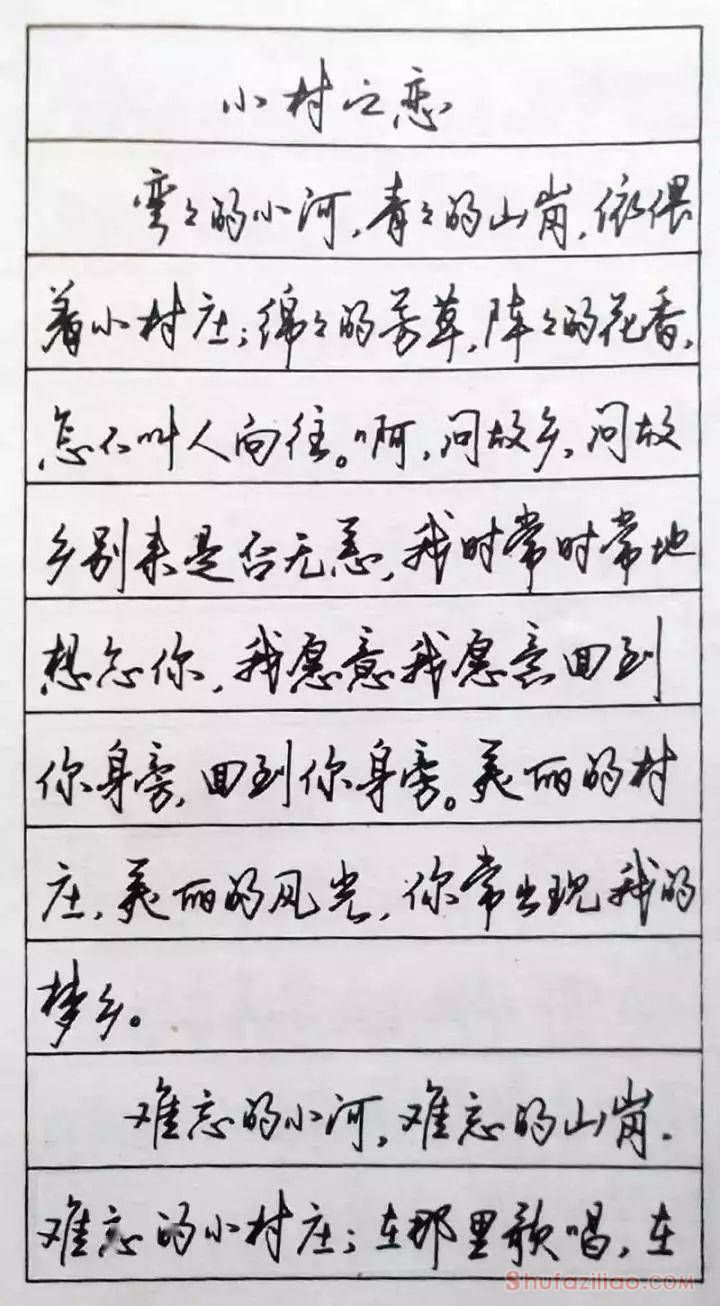 小村之恋
弯々的小河，青々的山岗，依偎
着小村庄；绵々的芳草，阵々的花香，
怎不叫人向往。啊，问故乡，问故
乡别来是否无恙，我时常时常地
想念你，我愿意我愿意回到
你身旁，回到你身旁。美丽的村
庄，美丽的风光，你常出现我的
梦乡。
难忘的小河，难忘的山岗，
难忘的小村庄；在那里歌唱，在
Shufaziliao.com